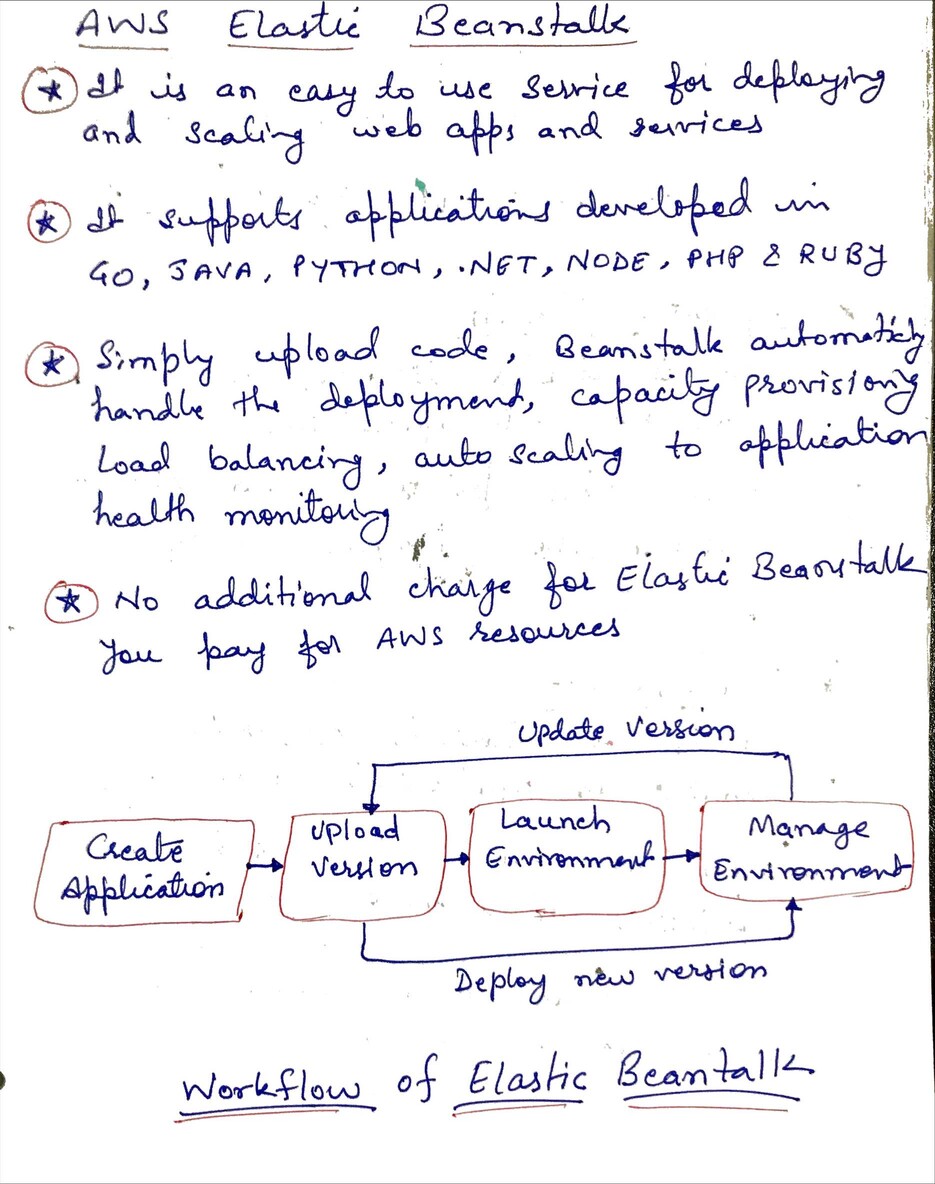 AWS Elastic Beanstalk
It is an easy to use service for deploying
and scaling web apps and services
It supports applications developed in
GO, JAVA, PYTHON, .NET, NODE, PHP & RUBY
Simply upload code, Beanstalk automaticly
handle the deployment, capacity provision'g
Load balancing, auto scaling to application
health monitoring
No additional charge for Elastic Beanstalk
You pay for AWS resources
Update Version
Create
Application
Upload
Version
Launch
Environment
Manage
Environment
Deploy new version
Workflow of Elastic Beantalk